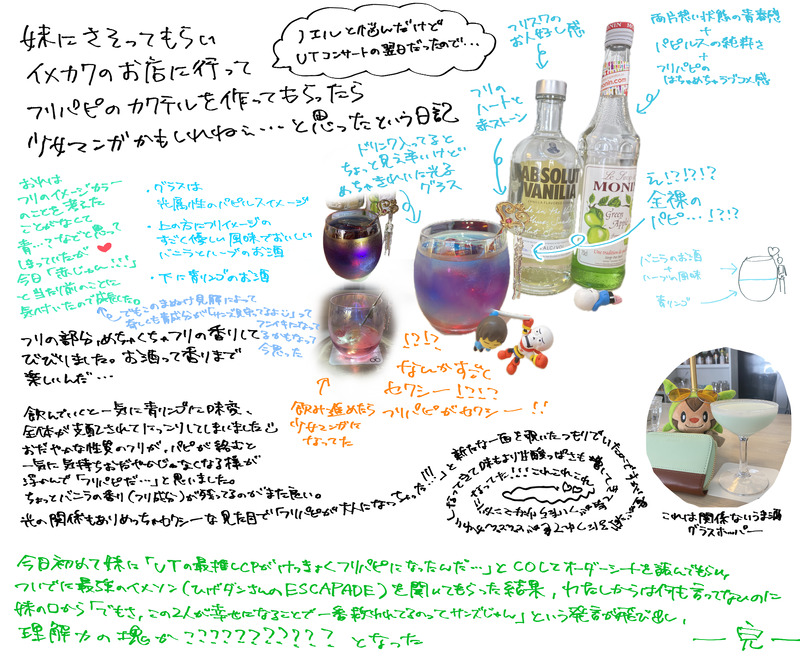 妹にさそってもらい
イメカクのお店に行って
フリパピのカクテルを作ってもらったら
少女マンガかもしれねぇ…と思ったという日記
ノエルと悩んだけど
UTコンサートの翌日だったので…
フリスクの
お人好し感
両片想い状態の青春感
+
パピルスの純粋さ
+
フリパピの
はちゃめちゃラブコメ感
フリの
ハートと
赤ストーン
ドリンク入ってると
ちょっと見え辛いけど
めちゃきれいた光る
グラス
おれは
フリのイメージカラー
のことを考えた
ことがなくて
青…?などと思って
しまっていたが
今日「赤じゃん!!!」
と当たり前のことに
気付いたので成長した。
・グラスは
光属性のパピルスイメージ
・上の方にフリイメージの
すごく優しい風味でおいしい
バニラとハーブのお酒
・下に青リンゴのお酒
ABSOLUT
VANILIA
MONIN
Green
Apple
え!?!?!?
全裸の
パピ…!?!?
バニラのお酒
+
ハーブの風味
青リンゴ
今思った
フリの部分、めちゃくちゃフリの香りして
びびりました。お酒って香りまで
楽しいんだ…
!?!?
なんかすごく
セクシー!?!?
フリパピがセクシー!!
飲み進めたら
少女マンガに
なってた
飲んでいくと一気に青リンゴに味変、
全体が支配されてにっこりしてしまいました
おだやかな性質のフリが、パピが絡むと
一気に気持ちおだやかじゃなくなる様が
浮かんで「フリパピだ…」と思いました。
ちょっとバニラの香り(フリ成分)が残ってるのがまた良い。
光の関係もありめっちゃセクシーな見た目で「フリパピが大人になっちゃった!!!」と新たな一面を覗いたつもりでいたのですが
これは関係ないうま酒
グラスホッパー
今日初めて妹に「UTの最推しCPがけっきょくフリパピになったんだ…」とCOしてオーダーシートを読んでもらい、
ついでに最強のイメソン(ひげダンさんのESCAPADE)を聞いてもらった結果、わたしからは何も言ってないのに
妹の口から「でもさ、この2人が幸せになることで一番救われてるのってサンズじゃん」という発言が飛び出し、
理解力の塊か???????????となった
―完―